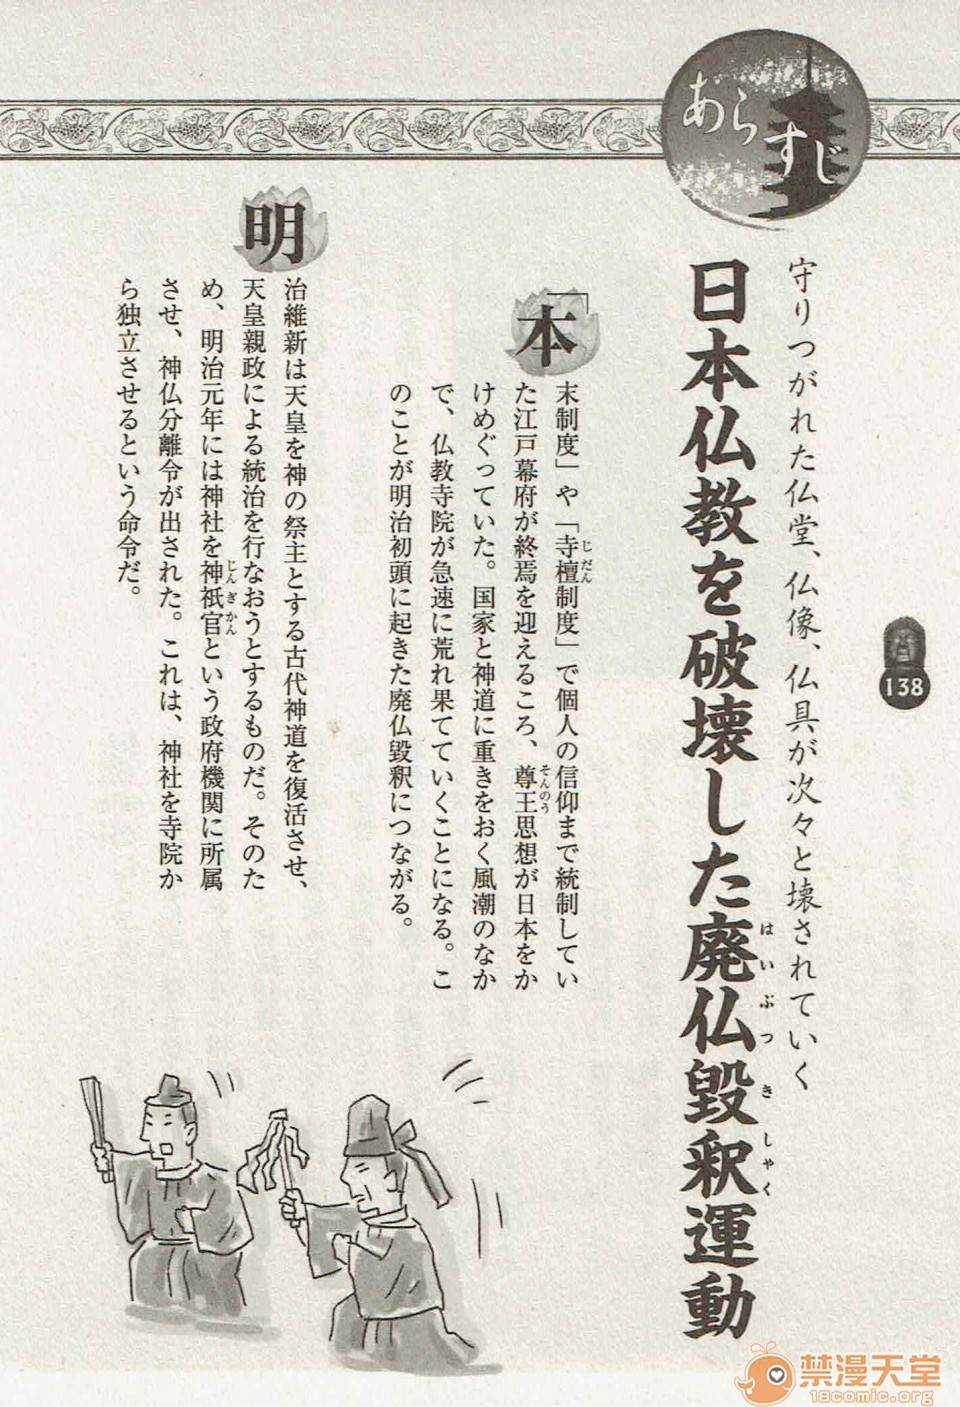 あらすじ
守りつがれた仏堂、仏像、仏具が次々と壊されていく
日本仏教を破壊した廃仏毀釈運動
はいぶつきしゃく
138
「本
末制度」や「寺檀制度」で個人の信仰まで統制してい
じだん
た江戸幕府が終焉を迎えるころ、尊王思想が日本をか
そんのう
けめぐっていた。国家と神道に重きをおく風潮のなか
で、仏教寺院が急速に荒れ果てていくことになる。こ
のことが明治初頭に起きた廃仏毀釈につながる。
明
治維新は天皇を神の祭主とする古代神道を復活させ、
天皇親政による統治を行なおうとするものだ。そのた
め、明治元年には神社を神祇官という政府機関に所属
じんぎかん
させ、神仏分離令が出された。これは、神社を寺院か
ら独立させるという命令だ。
禁漫天堂
18comic.org